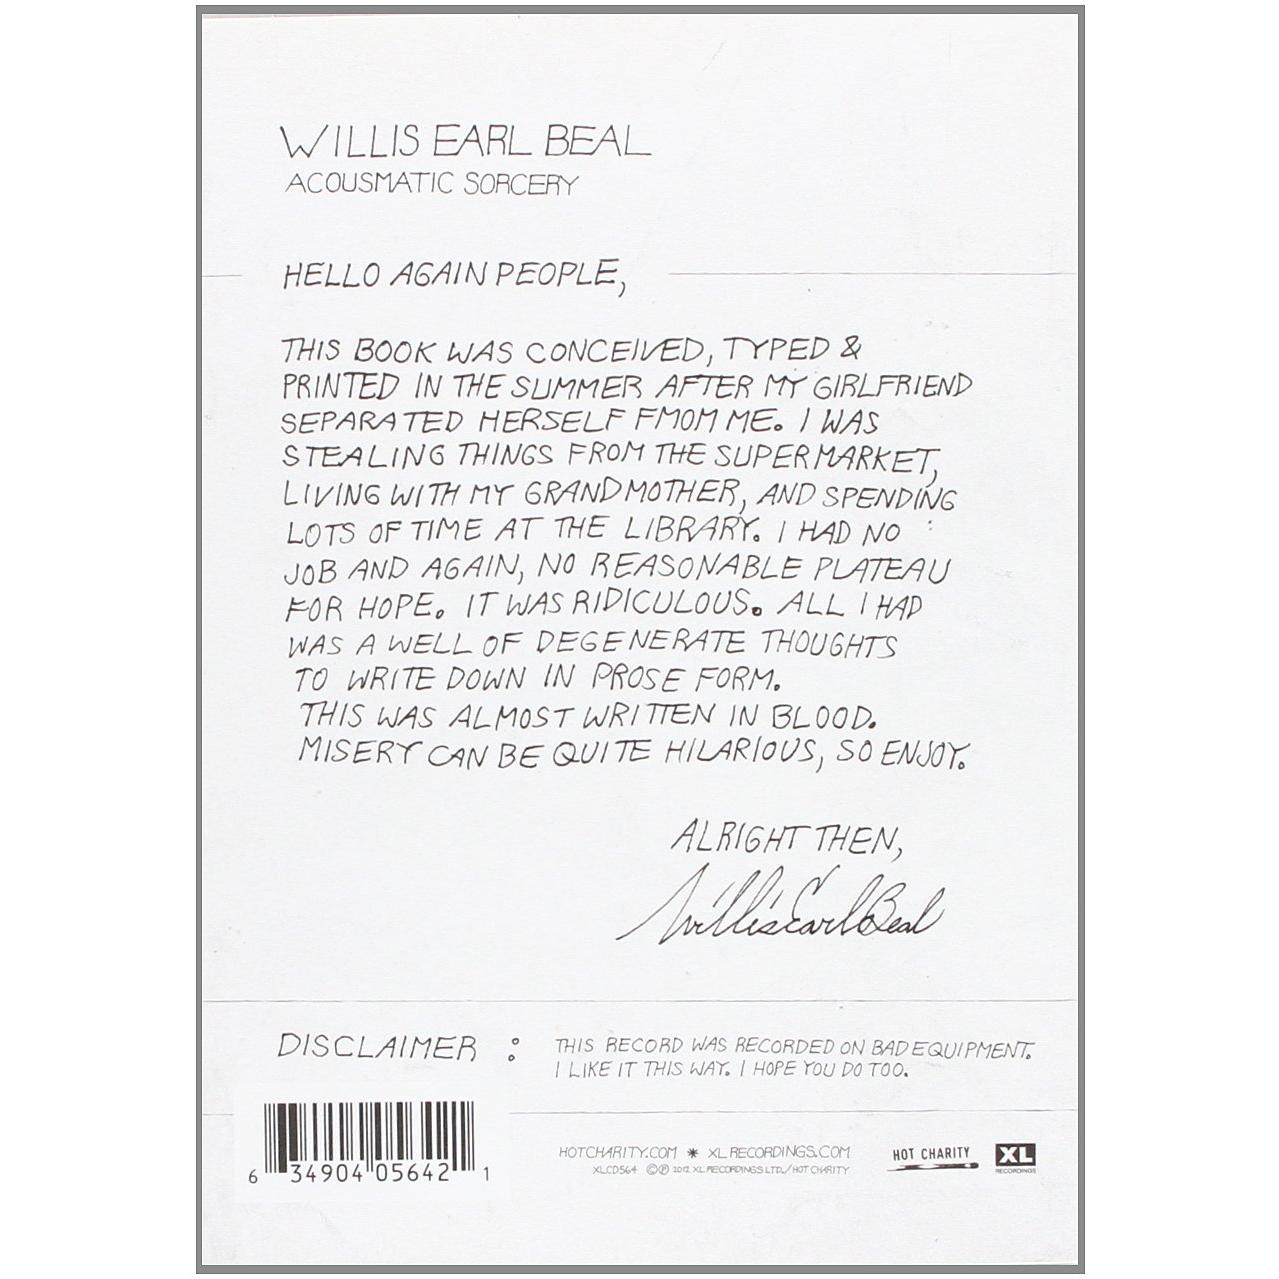 WILLIS EARL BEAL
ACOUSMATIC SORCERY
HELLO AGAIN PEOPLE,
THIS BOOK WAS CONCEIVED, TYPED &
PRINTED IN THE SUMMER AFTER MY GIRLFRIEND
SEPARATED HERSELF FMOM ME. I WAS
STEALING THINGS FROM THE SUPERMARKET,
LIVING WITH MY GRANDMOTHER, AND SPENDING
LOTS OF TIME AT THE LIBRARY. I HAD NO
JOB AND AGAIN, NO REASONABLE PLATEAU
FOR HOPE. IT WAS RIDICULOUS. ALL I HAD
WAS A WELL OF DEGENERATE THOUGHTS
TO WRITE DOWN IN PROSE FORM.
THIS WAS ALMOST WRITTEN IN BLOOD.
MISERY CAN BE QUITE HILARIOUS, SO ENJOY.
ALRIGHT THEN,
Willis Earl Beal
DISCLAIMER :
THIS RECORD WAS RECORDED ON BAD EQUIPMENT.
I LIKE IT THIS WAY. I HOPE YOU DO TOO.
HOTCHARITY.COM * XLRECORDINGS.COM
XLCD564 ©℗ 2012 XL RECORDINGS LTD./HOT CHARITY
HOT CHARITY
XL
RECORDINGS
6 34904 05642 1